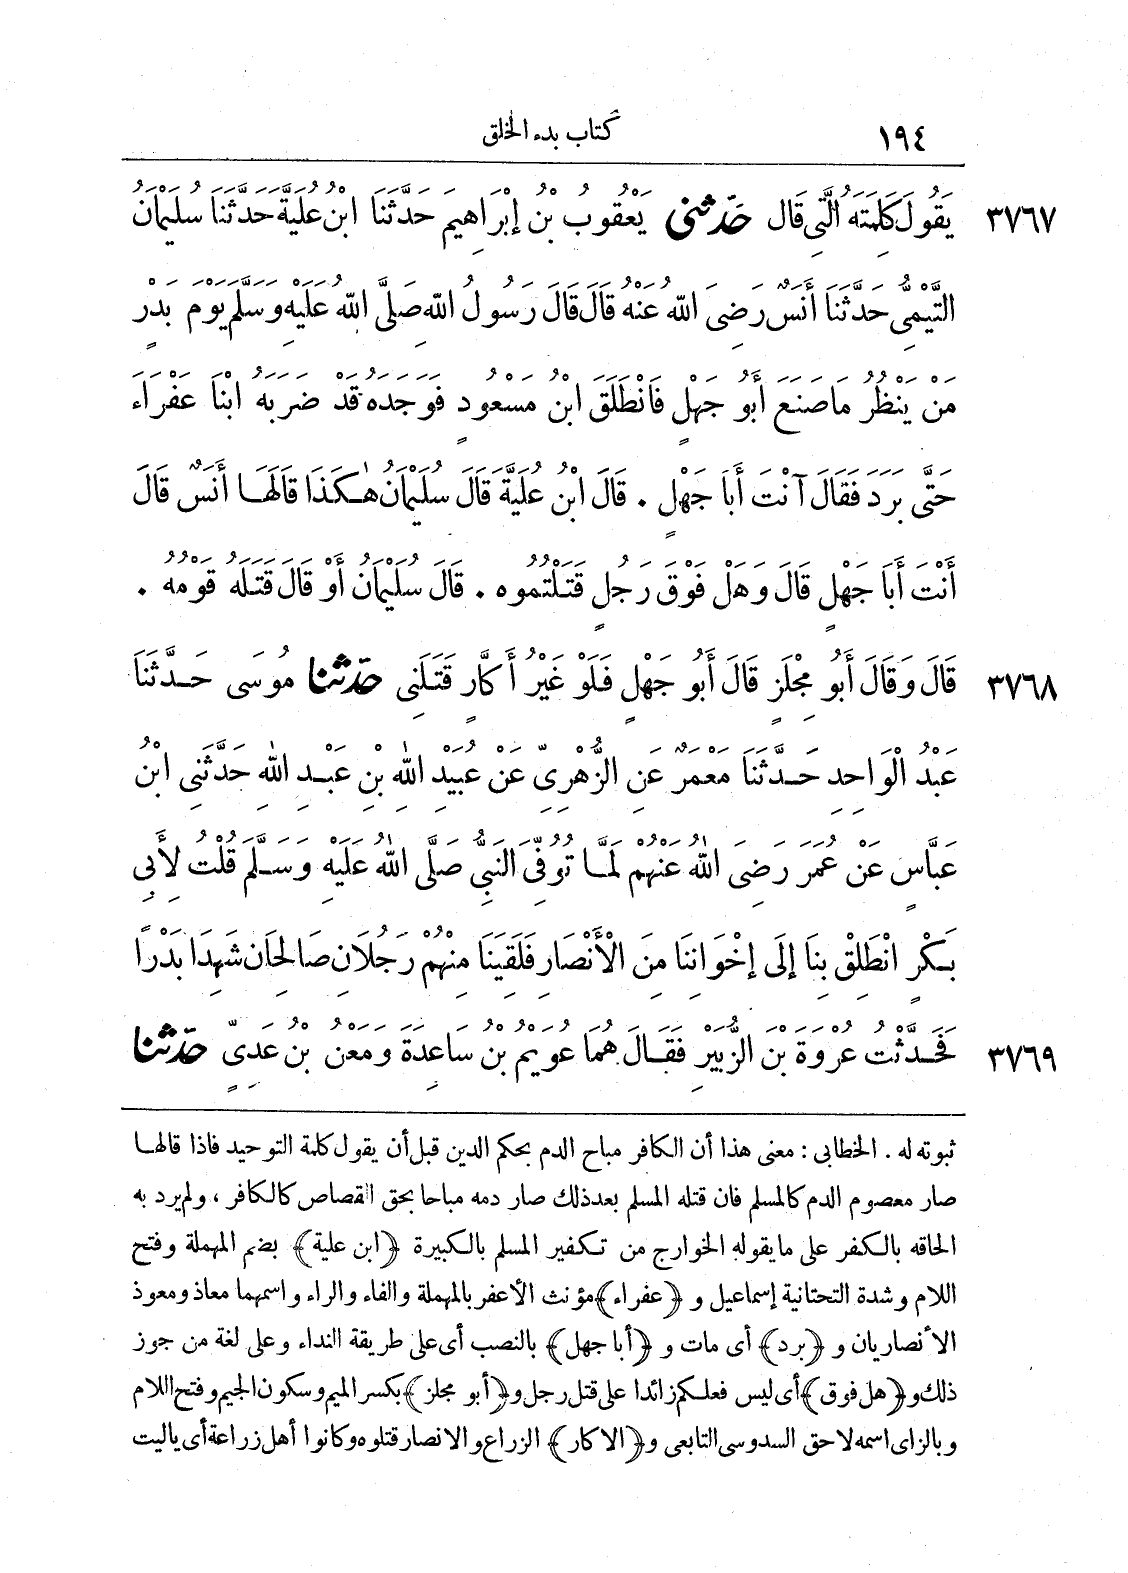 ١٩٤ كتاب بدء الخلق
٣٧٦٧ يَقُولَ كَلِمَتَهُ الَّتِي قَالَ حَدَّثَنِي يَعْقُوبُ بْنُ إِبْرَاهِيمَ حَدَّثَنَا ابْنُ عُلَيَّةَ حَدَّثَنَا سُلَيْمَانُ
التَّيْمِيُّ حَدَّثَنَا أَنَسٌ رَضِيَ اللهُ عَنْهُ قَالَ قَالَ رَسُولُ اللهِ صَلَّى اللهُ عَلَيْهِ وَسَلَّمَ يَوْمَ بَدْرٍ
مَنْ يَنْظُرُ مَا صَنَعَ أَبُو جَهْلٍ فَانْطَلَقَ ابْنُ مَسْعُودٍ فَوَجَدَهُ قَدْ ضَرَبَهُ ابْنَا عَفْرَاءَ
حَتَّى بَرَدَ فَقَالَ آنْتَ أَبَا جَهْلٍ . قَالَ ابْنُ عُلَيَّةَ قَالَ سُلَيْمَانُ هٰكَذَا قَالَهَا أَنَسٌ قَالَ
أَنْتَ أَبَا جَهْلٍ قَالَ وَهَلْ فَوْقَ رَجُلٍ قَتَلْتُمُوهُ . قَالَ سُلَيْمَانُ أَوْ قَالَ قَتَلَهُ قَوْمُهُ .
٣٧٦٨ قَالَ وَقَالَ أَبُو مِجْلَزٍ قَالَ أَبُو جَهْلٍ فَلَوْ غَيْرُ أَكَّارٍ قَتَلَنِي حَدَّثَنَا مُوسَى حَدَّثَنَا
عَبْدُ الْوَاحِدِ حَدَّثَنَا مَعْمَرٌ عَنِ الزُّهْرِيِّ عَنْ عُبَيْدِ اللهِ بْنِ عَبْدِ اللهِ حَدَّثَنِي ابْنُ
عَبَّاسٍ عَنْ عُمَرَ رَضِيَ اللهُ عَنْهُمْ لَمَّا تُوُفِّيَ النَّبِيُّ صَلَّى اللهُ عَلَيْهِ وَسَلَّمَ قُلْتُ لِأَبِي
بَكْرٍ انْطَلِقْ بِنَا إِلَى إِخْوَانِنَا مِنَ الْأَنْصَارِ فَلَقِيَنَا مِنْهُمْ رَجُلَانِ صَالِحَانِ شَهِدَا بَدْرًا
٣٧٦٩ فَحَدَّثْتُ عُرْوَةَ بْنَ الزُّبَيْرِ فَقَالَ هُمَا عُوَيْمُ بْنُ سَاعِدَةَ وَمَعْنُ بْنُ عَدِيٍّ حَدَّثَنَا
ثبوته له . الخطابى : معنى هذا أن الكافر مباح الدم بحكم الدين قبل أن يقول كلمة التوحيد فاذا قالها
صار معصوم الدم كالمسلم فان قتله المسلم بعد ذلك صار دمه مباحا بحق القصاص كالكافر ، ولم يرد به
الحاقه بالكفر على ما يقوله الخوارج من تكفير المسلم بالكبيرة ﴿ابن علية﴾ بضم المهملة وفتح
اللام وشدة التحتانية إسماعيل و ﴿عفراء﴾ مؤنث الأعفر بالمهملة والفاء والراء واسمهما معاذ ومعوذ
الأنصاريان و ﴿برد﴾ أى مات و ﴿أبا جهل﴾ بالنصب أى على طريقة النداء وعلى لغة من جوز
ذلك و ﴿هل فوق﴾ أى ليس فعلكم زائدا على قتل رجل و ﴿أبو مجلز﴾ بكسر الميم وسكون الجيم وفتح اللام
وبالزاى اسمه لاحق السدوسى التابعى و ﴿الاكار﴾ الزراع والانصار قتلوه وكانوا أهل زراعة أى ياليت